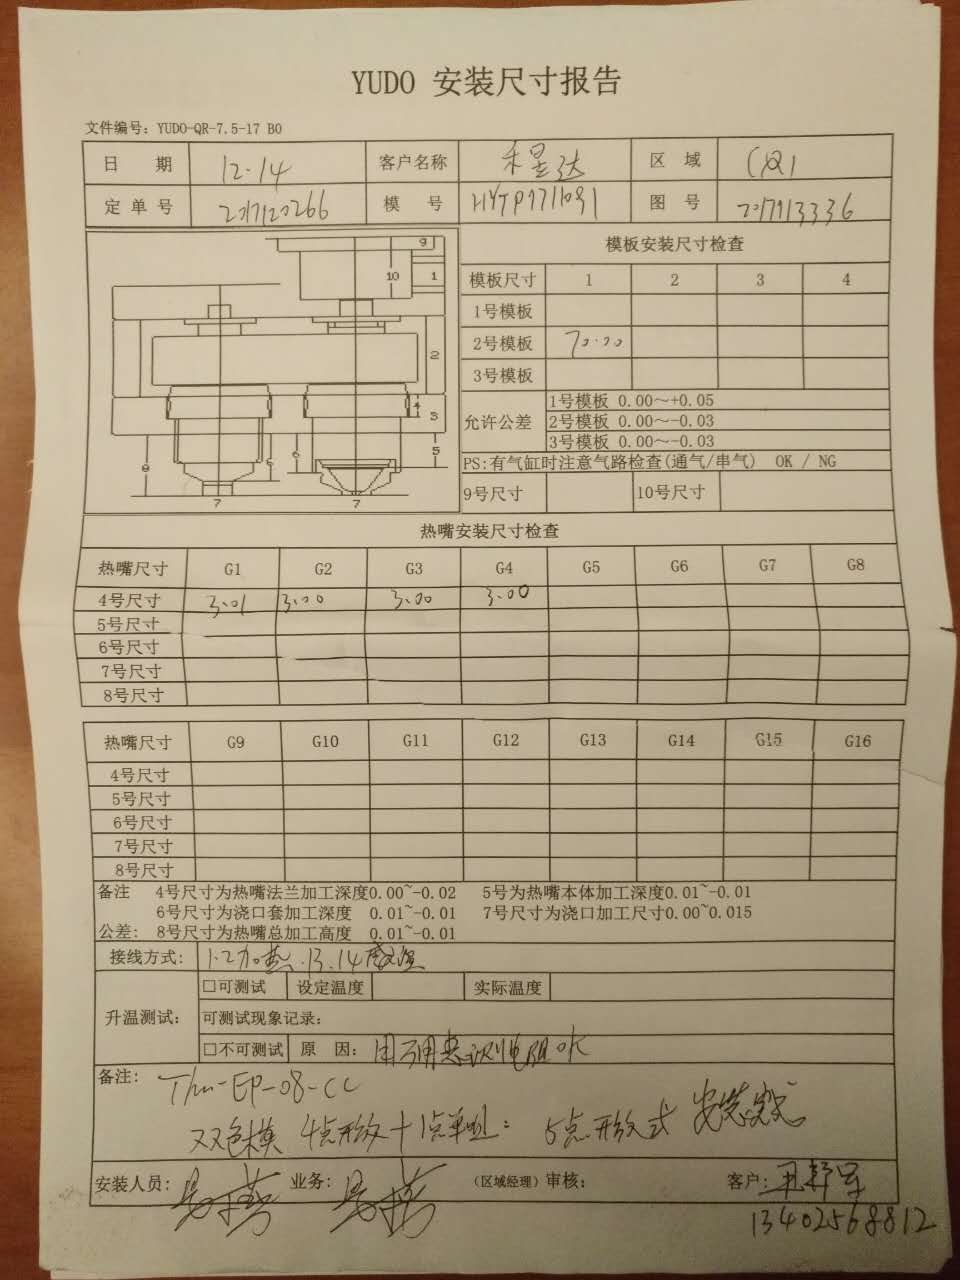 YUDO 安装尺寸报告
文件编号: YUDO-QR-7.5-17 B0
日 期 12.14 客户名称 禾昱达 区 域
定单号 2017120266 模 号 图 号 2017913336
模板安装尺寸检查
模板尺寸 1 2 3 4
1号模板
2号模板 70.00
3号模板
允许公差
1号模板 0.00～+0.05
2号模板 0.00～-0.03
3号模板 0.00～-0.03
PS:有气缸时注意气路检查(通气/串气) OK / NG
9号尺寸 10号尺寸
9
10 1
2
4
3
5
8 6 6
7 7
热嘴安装尺寸检查
热嘴尺寸 G1 G2 G3 G4 G5 G6 G7 G8
4号尺寸 3.01 3.00 3.00 3.00
5号尺寸
6号尺寸
7号尺寸
8号尺寸
热嘴尺寸 G9 G10 G11 G12 G13 G14 G15 G16
4号尺寸
5号尺寸
6号尺寸
7号尺寸
8号尺寸
备注 4号尺寸为热嘴法兰加工深度0.00~-0.02 5号为热嘴本体加工深度0.01~-0.01
6号尺寸为浇口套加工深度 0.01~-0.01 7号尺寸为浇口加工尺寸0.00~0.015
公差: 8号尺寸为热嘴总加工高度 0.01~-0.01
接线方式: 1.2加热.13.14感温
升温测试:
□可测试 设定温度 实际温度
可测试现象记录:
□不可测试 原 因: 用万用表测电阻OK
备注: -EP-08-CC
双色模 4点 +1点单咀: 5点
安装人员: 业务: (区域经理)审核: 客户:
13402568812